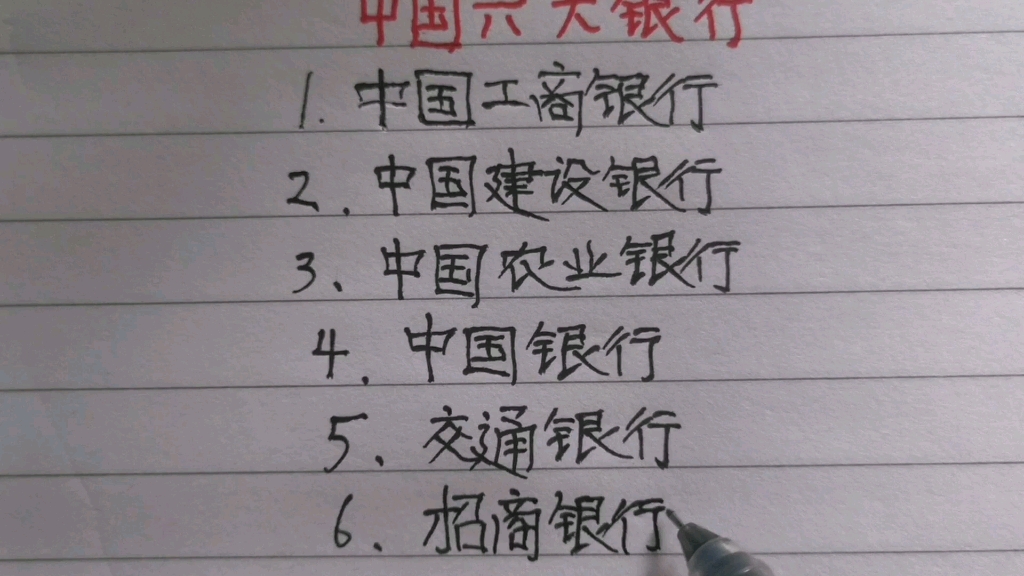 中国六大银行
1. 中国工商银行
2. 中国建设银行
3、中国农业银行
4. 中国银行
5、交通银行
6、招商银行